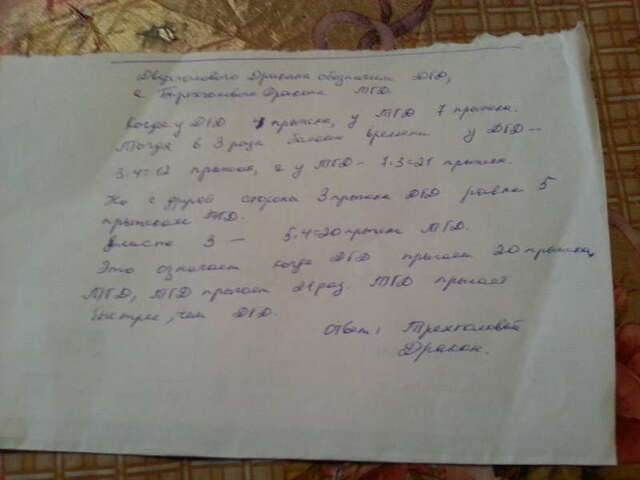 Двухголового Дракона обозначим ДГД,
а Трёхголового Дракона ТГД.
Когда у ДГД 4 прыжка, у ТГД 7 прыжка.
Тогда в 3 раза больше времени у ДГД -
3·4=12 прыжков, а у ТГД - 7·3=21 прыжка.
Но с другой стороны 3 прыжка ДГД равна 5
прыжкам ТГД.
3 - 5·4=20 прыжка ТГД.
Это означает когда ДГД прыгает 20 прыжка,
ТГД, ТГД прыгает 21 раз. ТГД прыгает
быстрее, чем ДГД.
Ответ: Трёхголовой
Дракон.